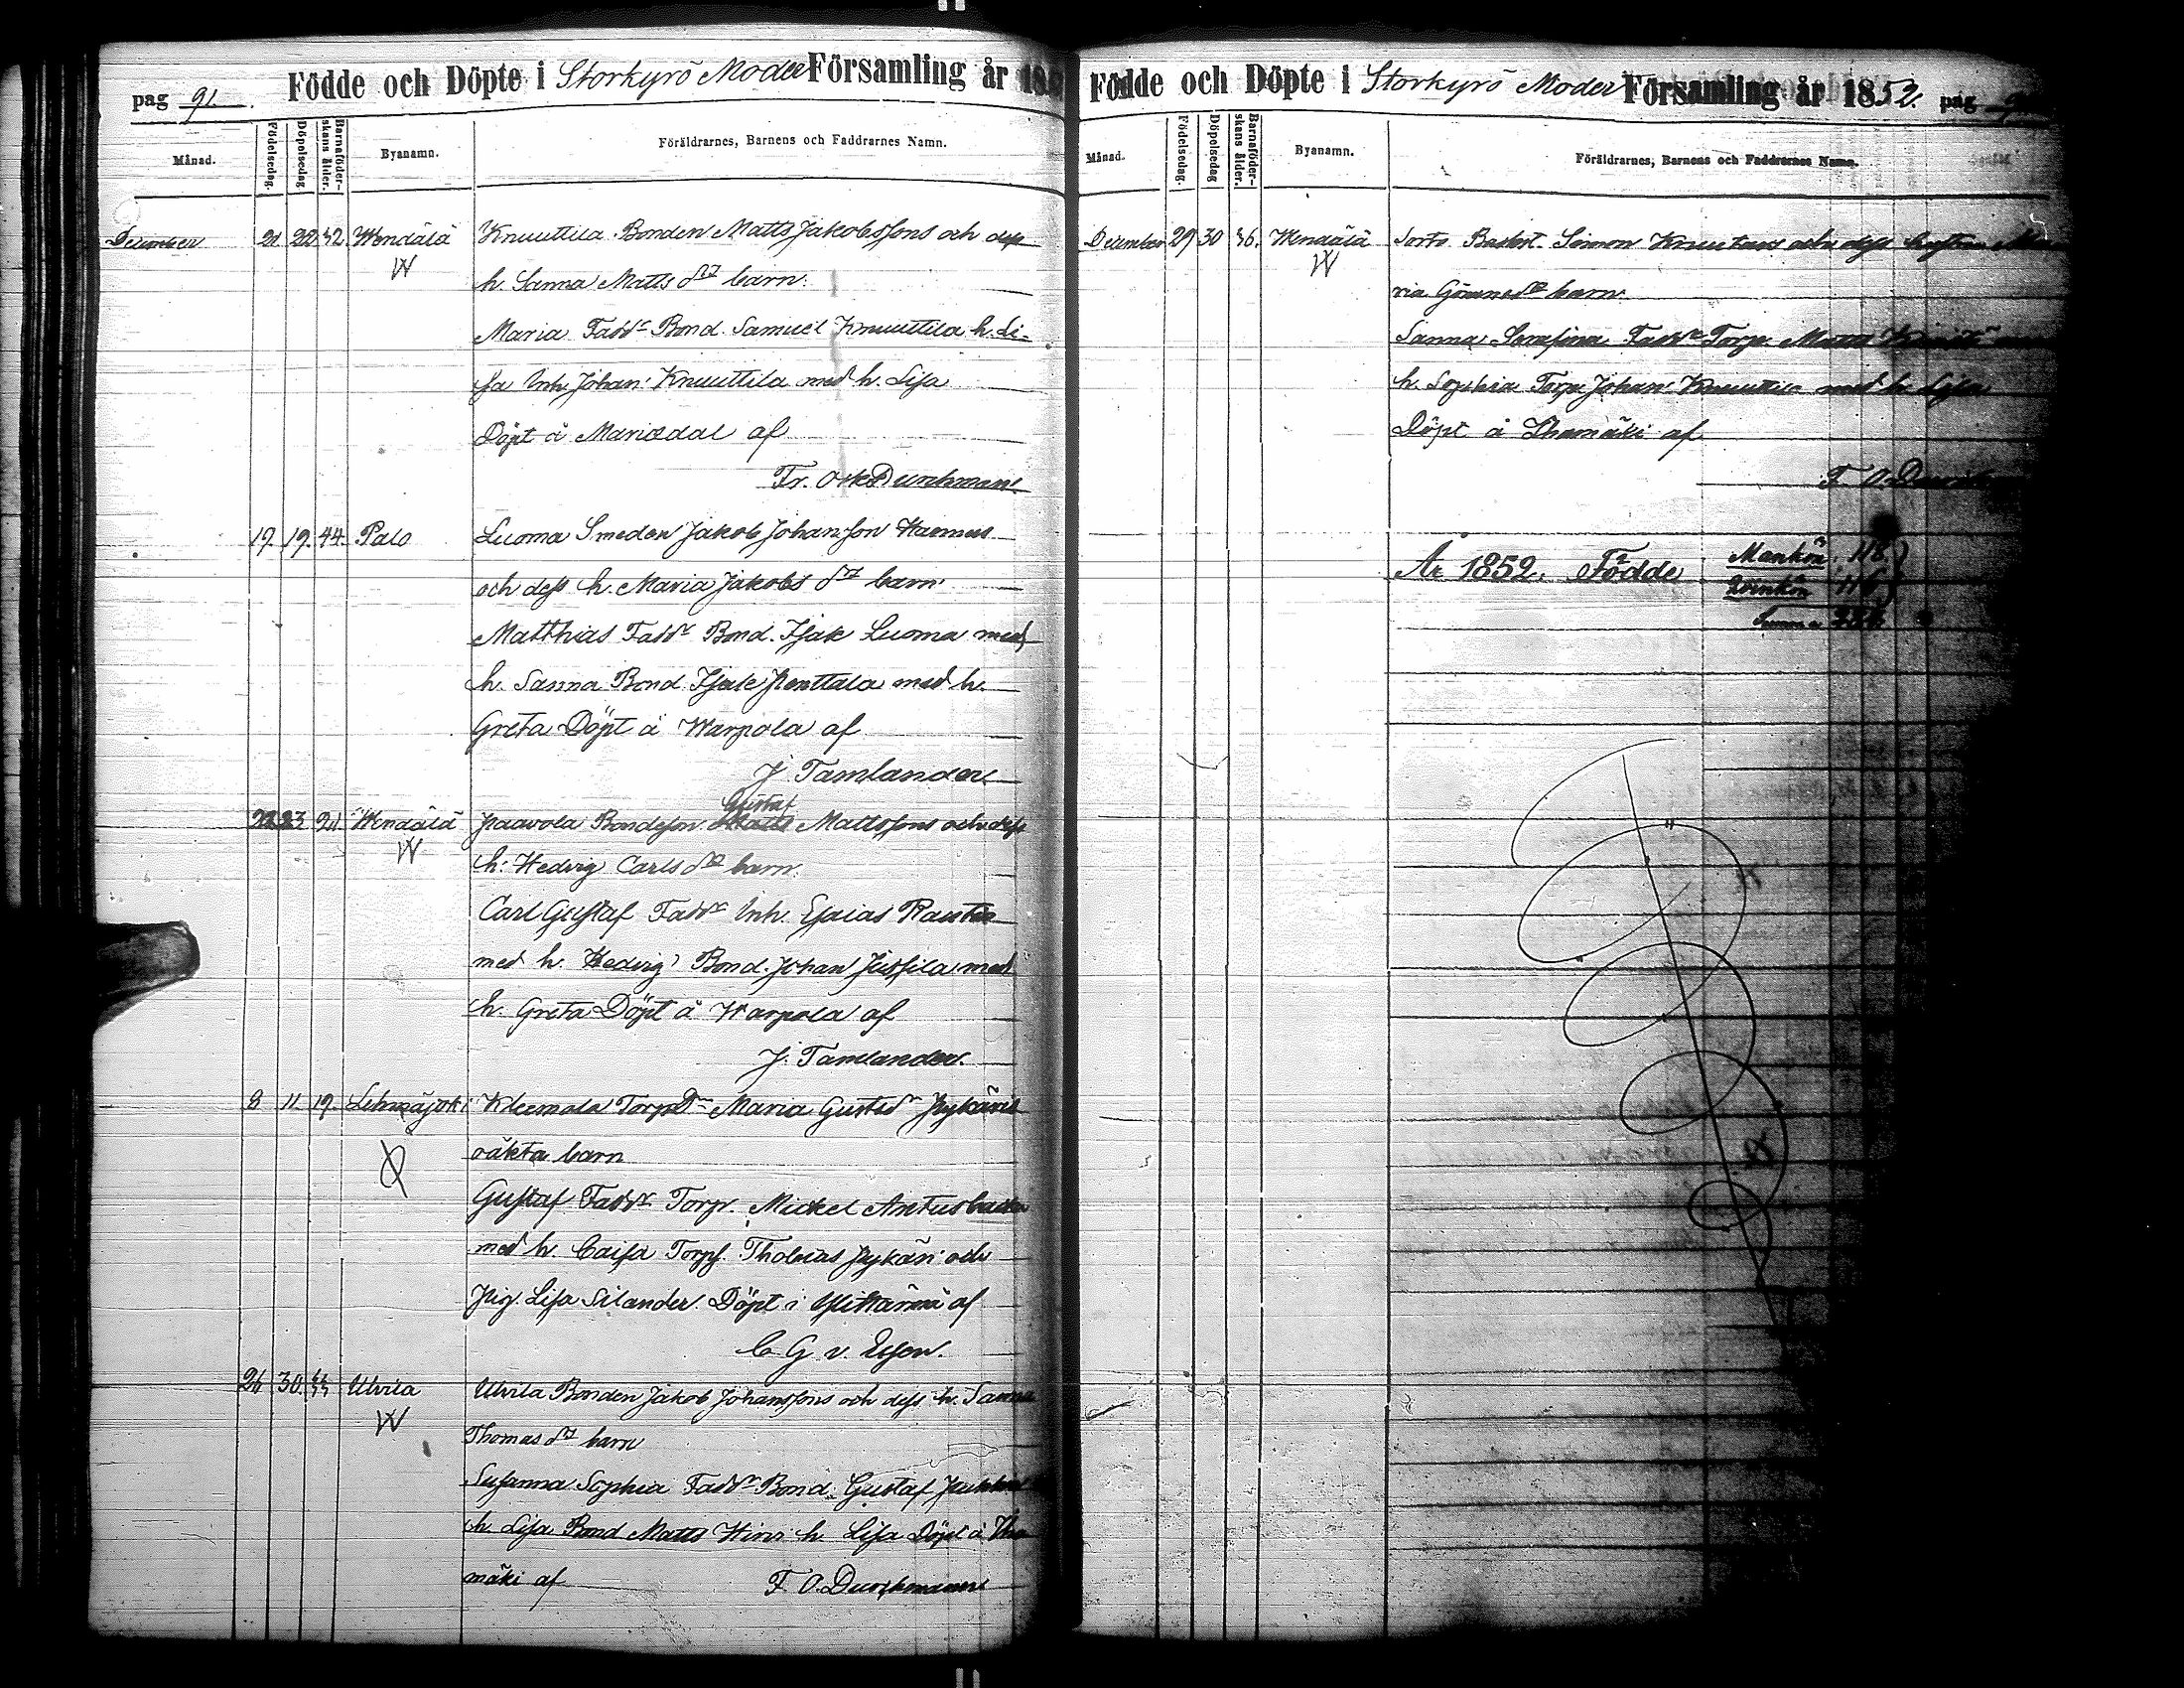 pag 91. Födde och Döpte i Storkyrö Moder Församling år 185
Månad. Födelsedag. Döpelsedag Barnaföder-skans ålder. Byanamn. Föräldrarnes, Barnens och Faddrarnes Namn.
December 21 22 32 Wendälä Knuuttila Bonden Matts Jakobssons och dess
W h. Sanna Matts dr barn.
Maria Faddr Bond. Samuel Knuuttila h. Li-
sa Inh. Johan Knuuttila med h. Lisa
Döpt å Mariedal af
Fr. Osk Durchman.
19. 19. 44. Palo Luoma Smeden Jakob Johansson
och dess h. Maria Jakobs dr barn
Matthias Faddr Bond. Isak Luoma med
h. Sanna Bond Isak Penttala med h.
Greta Döpt å Warpola af
J. Tamlander
22 23 21 Wendälä Paavola Bondeson Matts Gustaf Mattssons och dess
W h. Hedvig Carls dr barn.
Carl Gustaf Faddr Inh. Esaias Rautio
med h. Hedvig Bond. Johan Jussila med
h. Greta Döpt å Warpola af
J. Tamlander.
8 11. 19. Lehmäjoki Kleemola Torp Dr Maria Gustsdr Pykäris
oäkta barn
Gustaf Faddr Torp. Mickel Antusbacka
med h. Caisa Torps. Thobias Pykäri och
Pig. Lisa Silander. Döpt i af
C G v. Essen.
26 30. 44 Ulvila Ulvila Bonden Jakob Johanssons och dess h. Sanna
W Thomas dr barn
Susanna Sophia Faddr Bond. Gustaf
h. Lisa Bond Matts h. Lisa Döpt å
mäki af F. O. Durchman
Födde och Döpte i Storkyrö Moder Församling år 1852. pag
Månad. Födelsedag. Döpelsedag Barnaföder-skans ålder. Byanamn. Föräldrarnes, Barnens och Faddrarnes Namn.
December 29 30 36. Wendälä Simon och dess hustru Ma
W ria barn
Sanna Serafina Faddr Torp. Matts
h. Sophia Torp Johan Knuuttila med h. Lisa
Döpt å af
F. O. Durch
År 1852. Födde Mankön. 118
Qvinkön 116
Summa 234